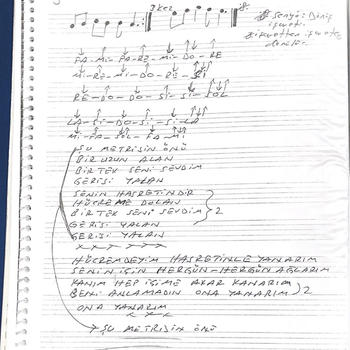 3 kez
Senyö: Dönüş
işareti
işaretten işarete
FA-Mİ-FA-RE-Mİ-DO-RE
Mİ-RE-Mİ-DO-RE-Sİ
RE-DO-DO-Sİ-Sİ-SOL
LA-Sİ-DO-Sİ-Sİ-LA
Mİ-FA-SOL-FA-Mİ
ŞU METRİSİN ÖNÜ
BİR UZUN ALAN
BİR TEK SENİ SEVDİM
GERİSİ YALAN
SENİN HASRETİNDİR
HÜCREME DOLAN
BİR TEK SENİ SEVDİM 2
GERİSİ YALAN
GERİSİ YALAN
x x x x x x
HÜCREMDEYİM HASRETİNLE YANARIM
SENİN İÇİN HERGÜN-HERGÜN AĞLARIM
KANIM HEP İÇİME AKAR KANARIM
BENİ ANLAMADIN ONA YANARIM 2
ONA YANARIM
x x x x
ŞU METRİSİN ÖNÜ